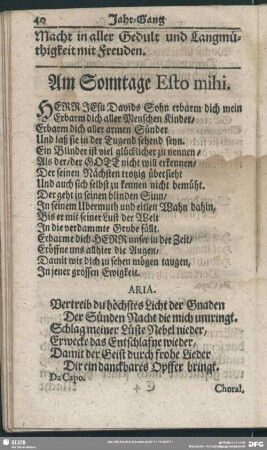 40 Jahr-Gang
Macht in aller Gedult und Langmü-
thigkeit mit Freuden.
Am Sonntage Esto mihi.
HERR JESU Davids Sohn erbarm dich mein
Erbarm dich aller Menschen Kinder/
Erbarm dich aller armen Sünder
Und laß sie in der Tugend sehend seyn.
Ein Blinder ist viel glücklicher zu nennen/
Als der/ der GOTT nicht will erkennen/
Der seinen Nächsten trotzig übersieht
Und auch sich selbst zu kennen nicht bemüht.
Der geht in seinem blinden Sinn/
In seinem Übermuth und eitlen Wahn dahin,
Bis er mit seiner Lust der Welt
In die verdammte Grube fällt.
Erbarme dich HERR unser in der Zeit/
Eröffne uns allhier die Augen/
Damit wir dich zu sehen mögen taugen,
In jener grossen Ewigkeit.
ARIA.
Vertreib du höchstes Licht der Gnaden
Der Sünden Nacht die mich umringt.
Schlag meiner Lüste Nebel nieder/
Erwecke das Entschlafne wieder/
Damit der Geist durch frohe Lieder
Dir ein danckbares Opffer bringt.
Da Capo.
Choral.